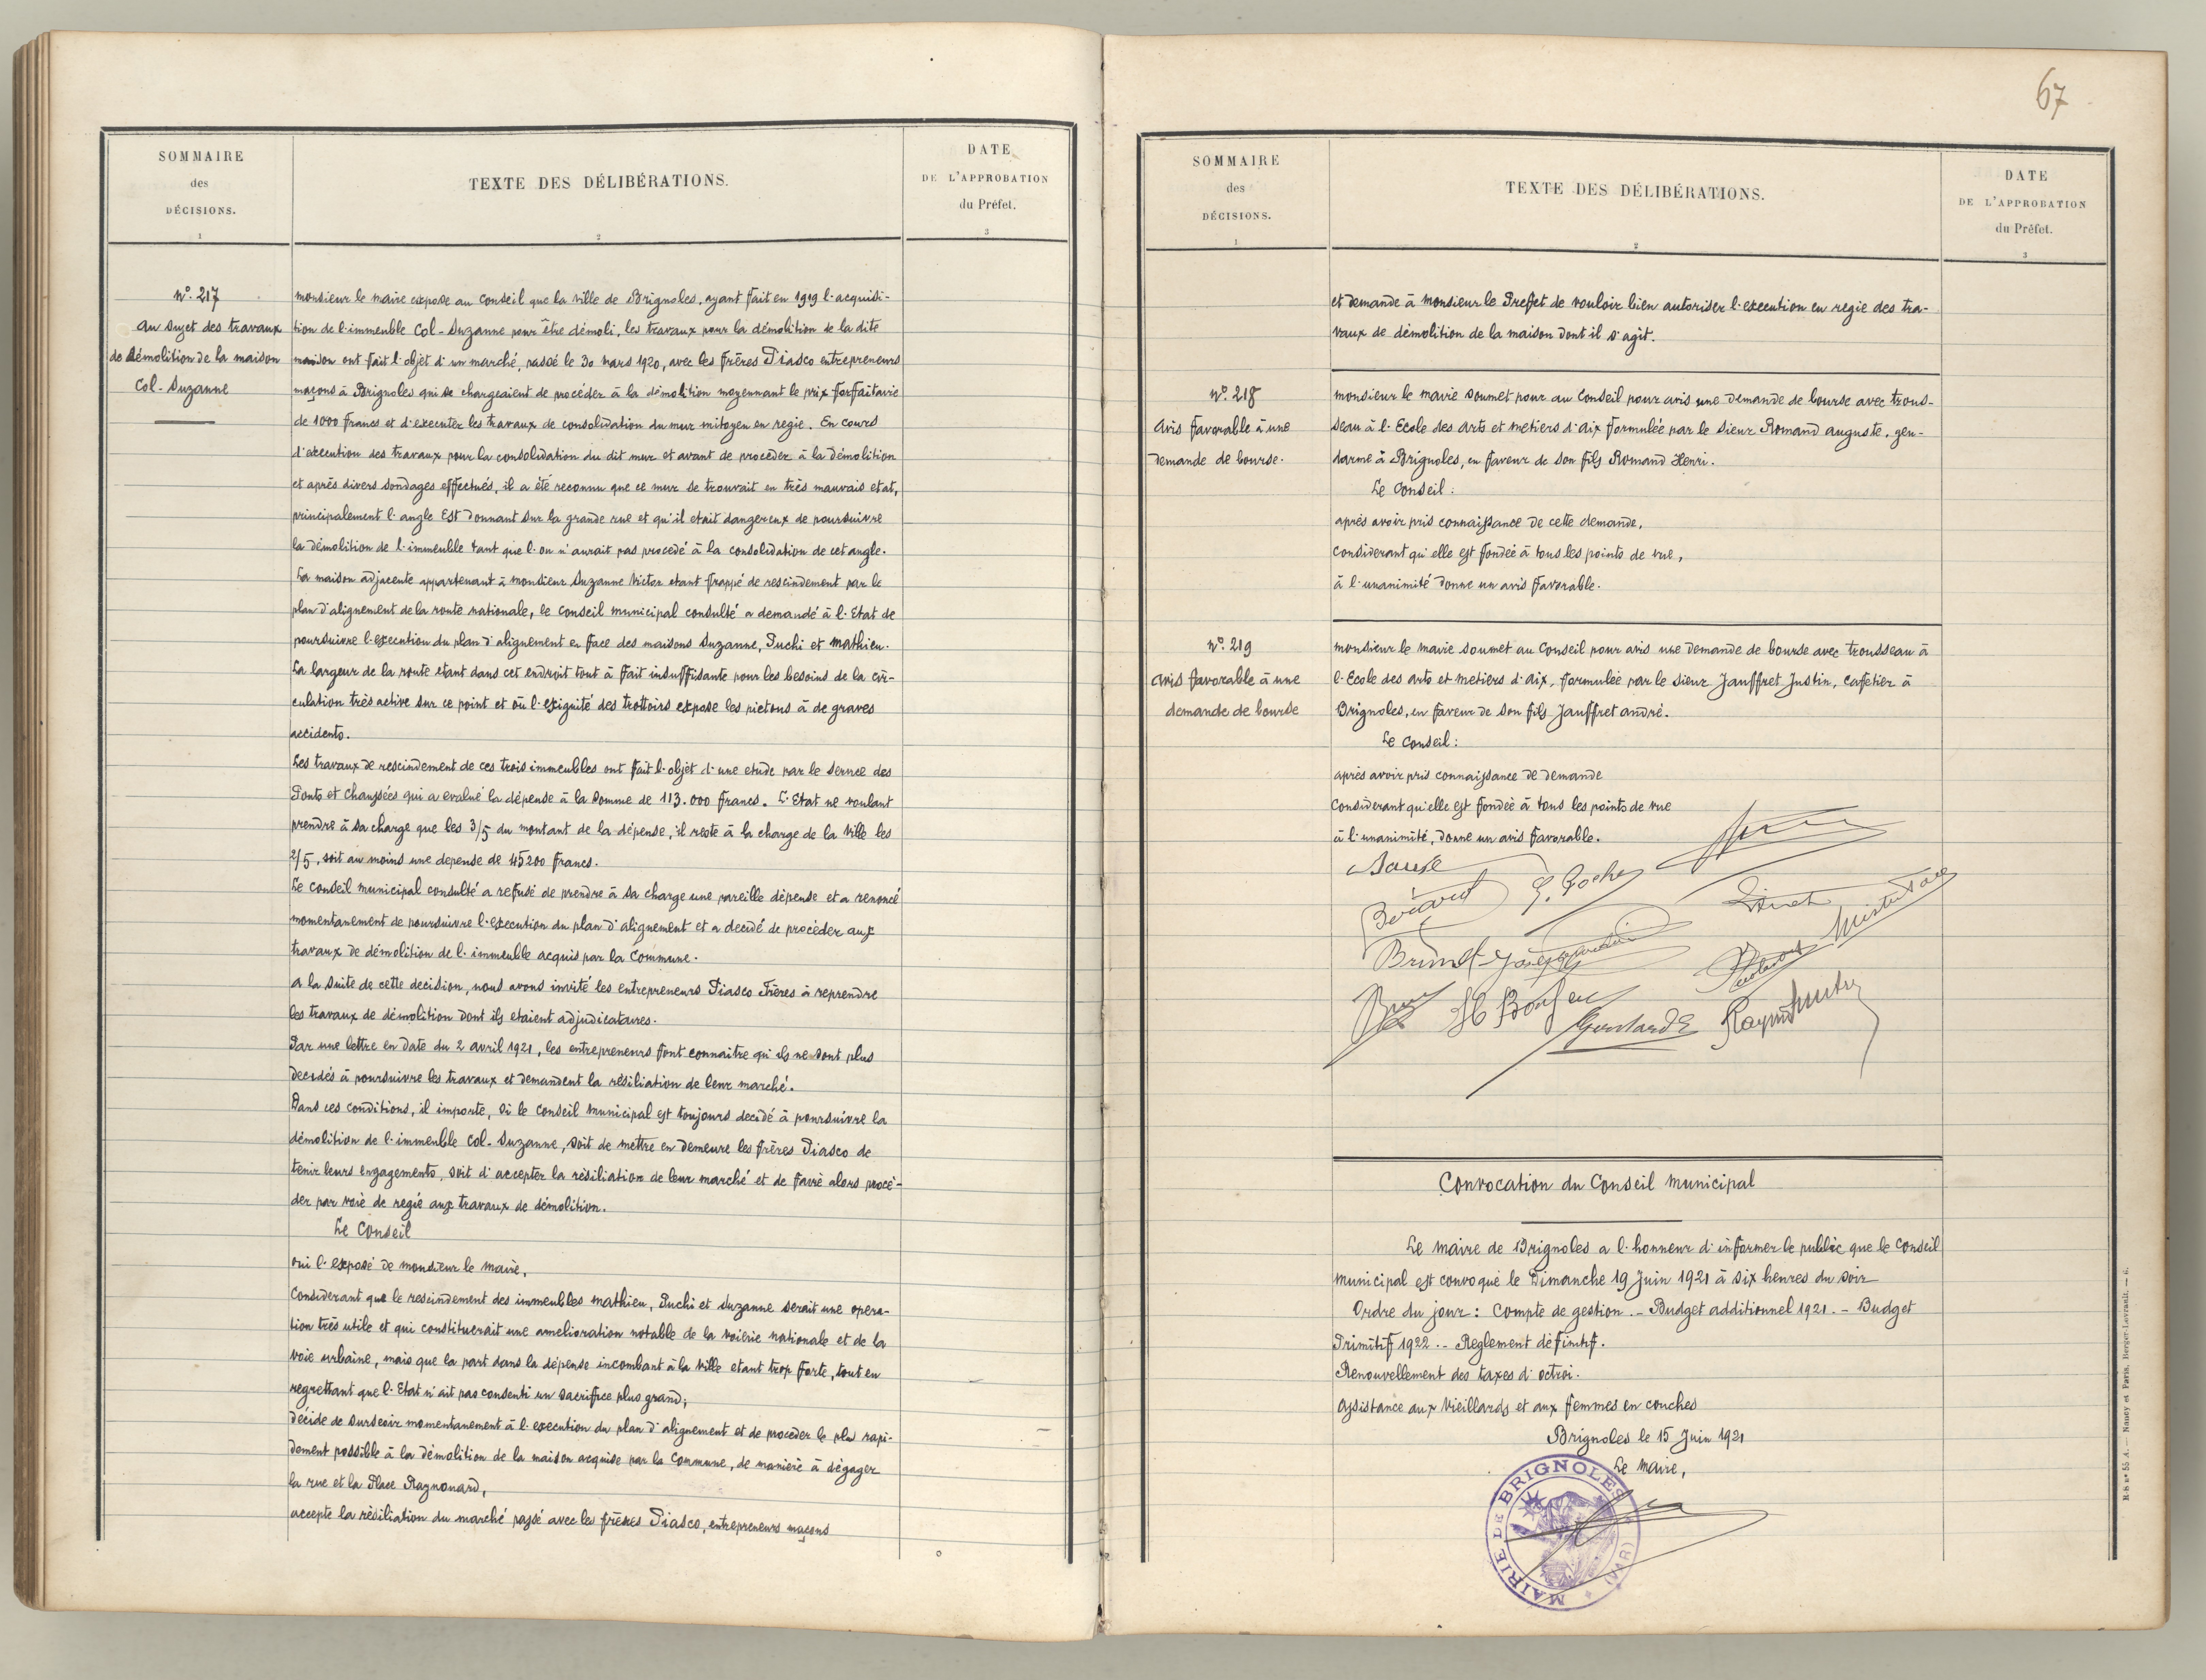 SOMMAIRE
des
DÉCISIONS.
1
TEXTE DES DÉLIBÉRATIONS.
2
DATE
DE L'APPROBATION
du Préfet.
3
N°. 217
Au sujet des travaux
de démolition de la maison
Col-Suzanne
monsieur le maire expose au Conseil que la ville de Brignoles, ayant fait en 1919 l'acquisi-
tion de l'immeuble Col-Suzanne pour être démoli, les travaux pour la démolition de la dite
maison ont fait l'objet d'un marché, passé le 30 mars 1920, avec les frères Piasco entrepreneurs
maçons à Brignoles qui se chargeaient de procéder à la démolition moyennant le prix forfaitaire
de 1000 francs et d'executer les travaux de consolidation du mur mitoyen en regie. En cours
d'execution des travaux pour la consolidation du dit mur et avant de procéder à la démolition
et après divers sondages effectués, il a été reconnu que ce mur se trouvait en très mauvais etat,
principalement l'angle Est donnant sur la grande rue et qu'il etait dangereux de poursuivre
la démolition de l'immeuble tant que l'on n'aurait pas procedé à la consolidation de cet angle.
La maison adjacente appartenant à monsieur Suzanne Victor etant frappé de rescindement par le
plan d'alignement de la route nationale, le conseil municipal consulté a demandé à l'Etat de
poursuivre l'execution du plan d'alignement en face des maisons Suzanne, Puchi et Mathieu.
La largeur de la route etant dans cet endroit tout à fait insuffisante pour les besoins de la cir-
culation très active sur ce point et où l'exiguité des trottoirs expose les pietons à de graves
accidents.
Les travaux de rescindement de ces trois immeubles ont fait l'objet d'une etude par le service des
Ponts et Chaussées qui a evalué la dépense à la somme de 113.000 francs. L'Etat ne voulant
prendre à sa charge que les 3/5 du montant de la dépense, il reste à la charge de la ville les
2/5, soit au moins une depense de 45200 francs.
Le conseil municipal consulté a refusé de prendre à sa charge une pareille dépense et a renoncé
momentanement de poursuivre l'execution du plan d'alignement et a decidé de procèder aux
travaux de démolition de l'immeuble acquis par la Commune.
A la suite de cette decision, nous avons invité les entrepreneurs Piasco Frères à reprendre
les travaux de démolition dont ils etaient adjudicataires.
Par une lettre en date du 2 avril 1921, les entrepreneurs font connaitre qu'ils ne sont plus
decidés à poursuivre les travaux et demandent la résiliation de leur marché.
Dans ces conditions, il importe, si le conseil municipal est toujours decidé à poursuivre la
démolition de l'immeuble Col-Suzanne, soit de mettre en demeure les frères Piasco de
tenir leurs engagements, soit d'accepter la résiliation de leur marché et de faire alors procé-
der par voie de regie aux travaux de démolition.
Le Conseil
oui l'exposé de monsieur le maire,
Considerant que le rescindement des immeubles Mathieu, Puchi et Suzanne serait une opera-
tion très utile et qui constituerait une amelioration notable de la voierie nationale et de la
voie urbaine, mais que la part dans la dépense incombant à la ville etant trop forte, tout en
regrettant que l'Etat n'ait pas consenti un sacrifice plus grand;
décide de surseoir momentanement à l'execution du plan d'alignement et de proceder le plus rapi-
dement possible à la démolition de la maison acquise par la Commune, de manière à dégager
la rue et la Place Raynouard,
accepte la résiliation du marché passé avec les frères Piasco, entrepreneurs maçons
67
SOMMAIRE
des
DÉCISIONS.
1
TEXTE DES DÉLIBÉRATIONS.
2
DATE
DE L'APPROBATION
du Préfet.
3
et demande à monsieur le Prefet de vouloir bien autoriser l'execution en regie des tra-
vaux de démolition de la maison dont il s'agit.
N°. 218
Avis favorable à une
demande de bourse.
monsieur le maire soumet pour au Conseil pour avis une demande de bourse avec trous-
seau à l'Ecole des Arts et metiers d'Aix formulée par le sieur Romand Auguste, gen-
darme à Brignoles, en faveur de son fils Romand Henri.
Le Conseil:
après avoir pris connaissance de cette demande,
considerant qu'elle est fondée à tous les points de vue,
à l'unanimité donne un avis favorable.
N°. 219
Avis favorable à une
demande de bourse
monsieur le maire soumet au Conseil pour avis une demande de bourse avec trousseau à
l'Ecole des Arts et metiers d'Aix, formulée par le sieur Jauffret Justin, cafetier à
Brignoles, en faveur de son fils Jauffret André.
Le Conseil:
après avoir pris connaissance de demande
Considerant qu'elle est fondée à tous les points de vue
à l'unanimité, donne un avis favorable.
Convocation du Conseil municipal
Le Maire de Brignoles a l'honneur d'informer le public que le Conseil
municipal est convoqué le Dimanche 19 Juin 1921 à six heures du soir
Ordre du jour: Compte de gestion. - Budget additionnel 1921. - Budget
Primitif 1922. - Reglement définitif.
Renouvellement des taxes d'octroi.
Assistance aux Vieillards et aux femmes en couches
Brignoles le 15 Juin 1921
Le Maire,
MAIRIE DE BRIGNOLES (VAR)
R-S N° 55 A. — Nancy et Paris, Berger-Levrault. — 6.